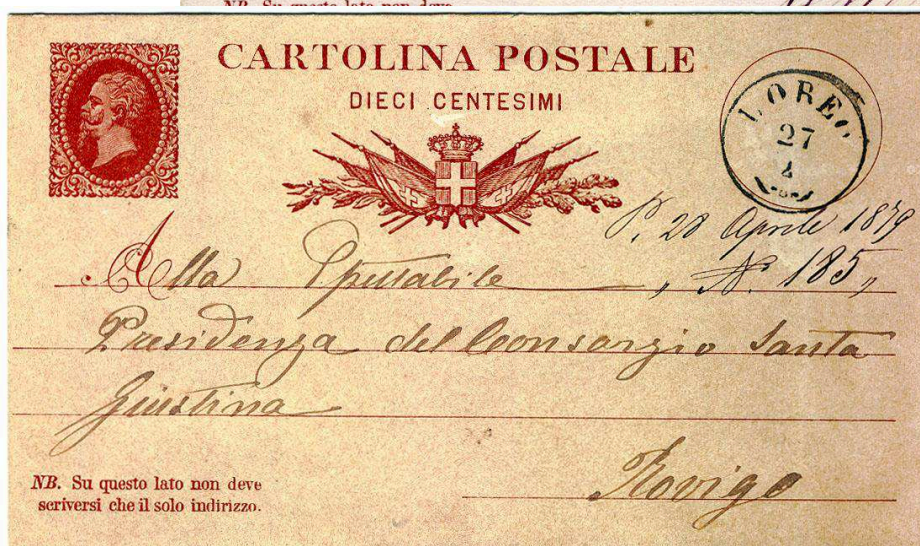 NB. Su questo lato non deve
CARTOLINA POSTALE
DIECI CENTESIMI
LOREO
27
P. 28 Aprile 1879
Alla Spettabile „ N. 185 „
Presidenza del Consorzio Santa
Giustina
Rovigo
NB. Su questo lato non deve
scriversi che il solo indirizzo.